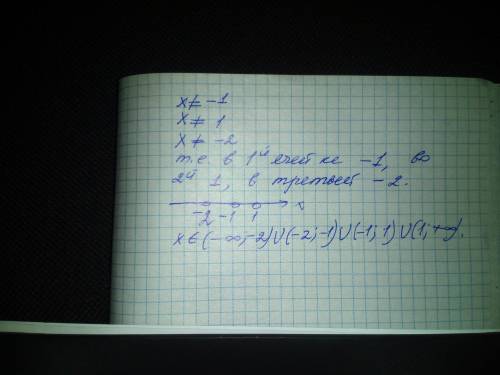 x ≠ -1
x ≠ 1
x ≠ -2
т.е. в 1й ячейке -1, во
2й 1, в третьей -2.
-2 -1 1 x
x ∈ (-∞; -2) ∪ (-2; -1) ∪ (-1; 1) ∪ (1; +∞).